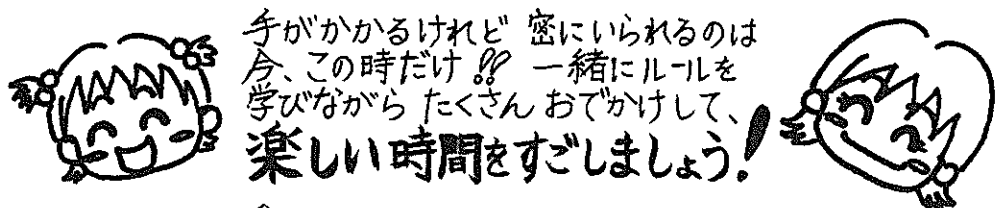 手がかかるけれど 密にいられるのは
今、この時だけ!! 一緒にルールを
学びながら たくさん おでかけして、
楽しい時間をすごしましょう!